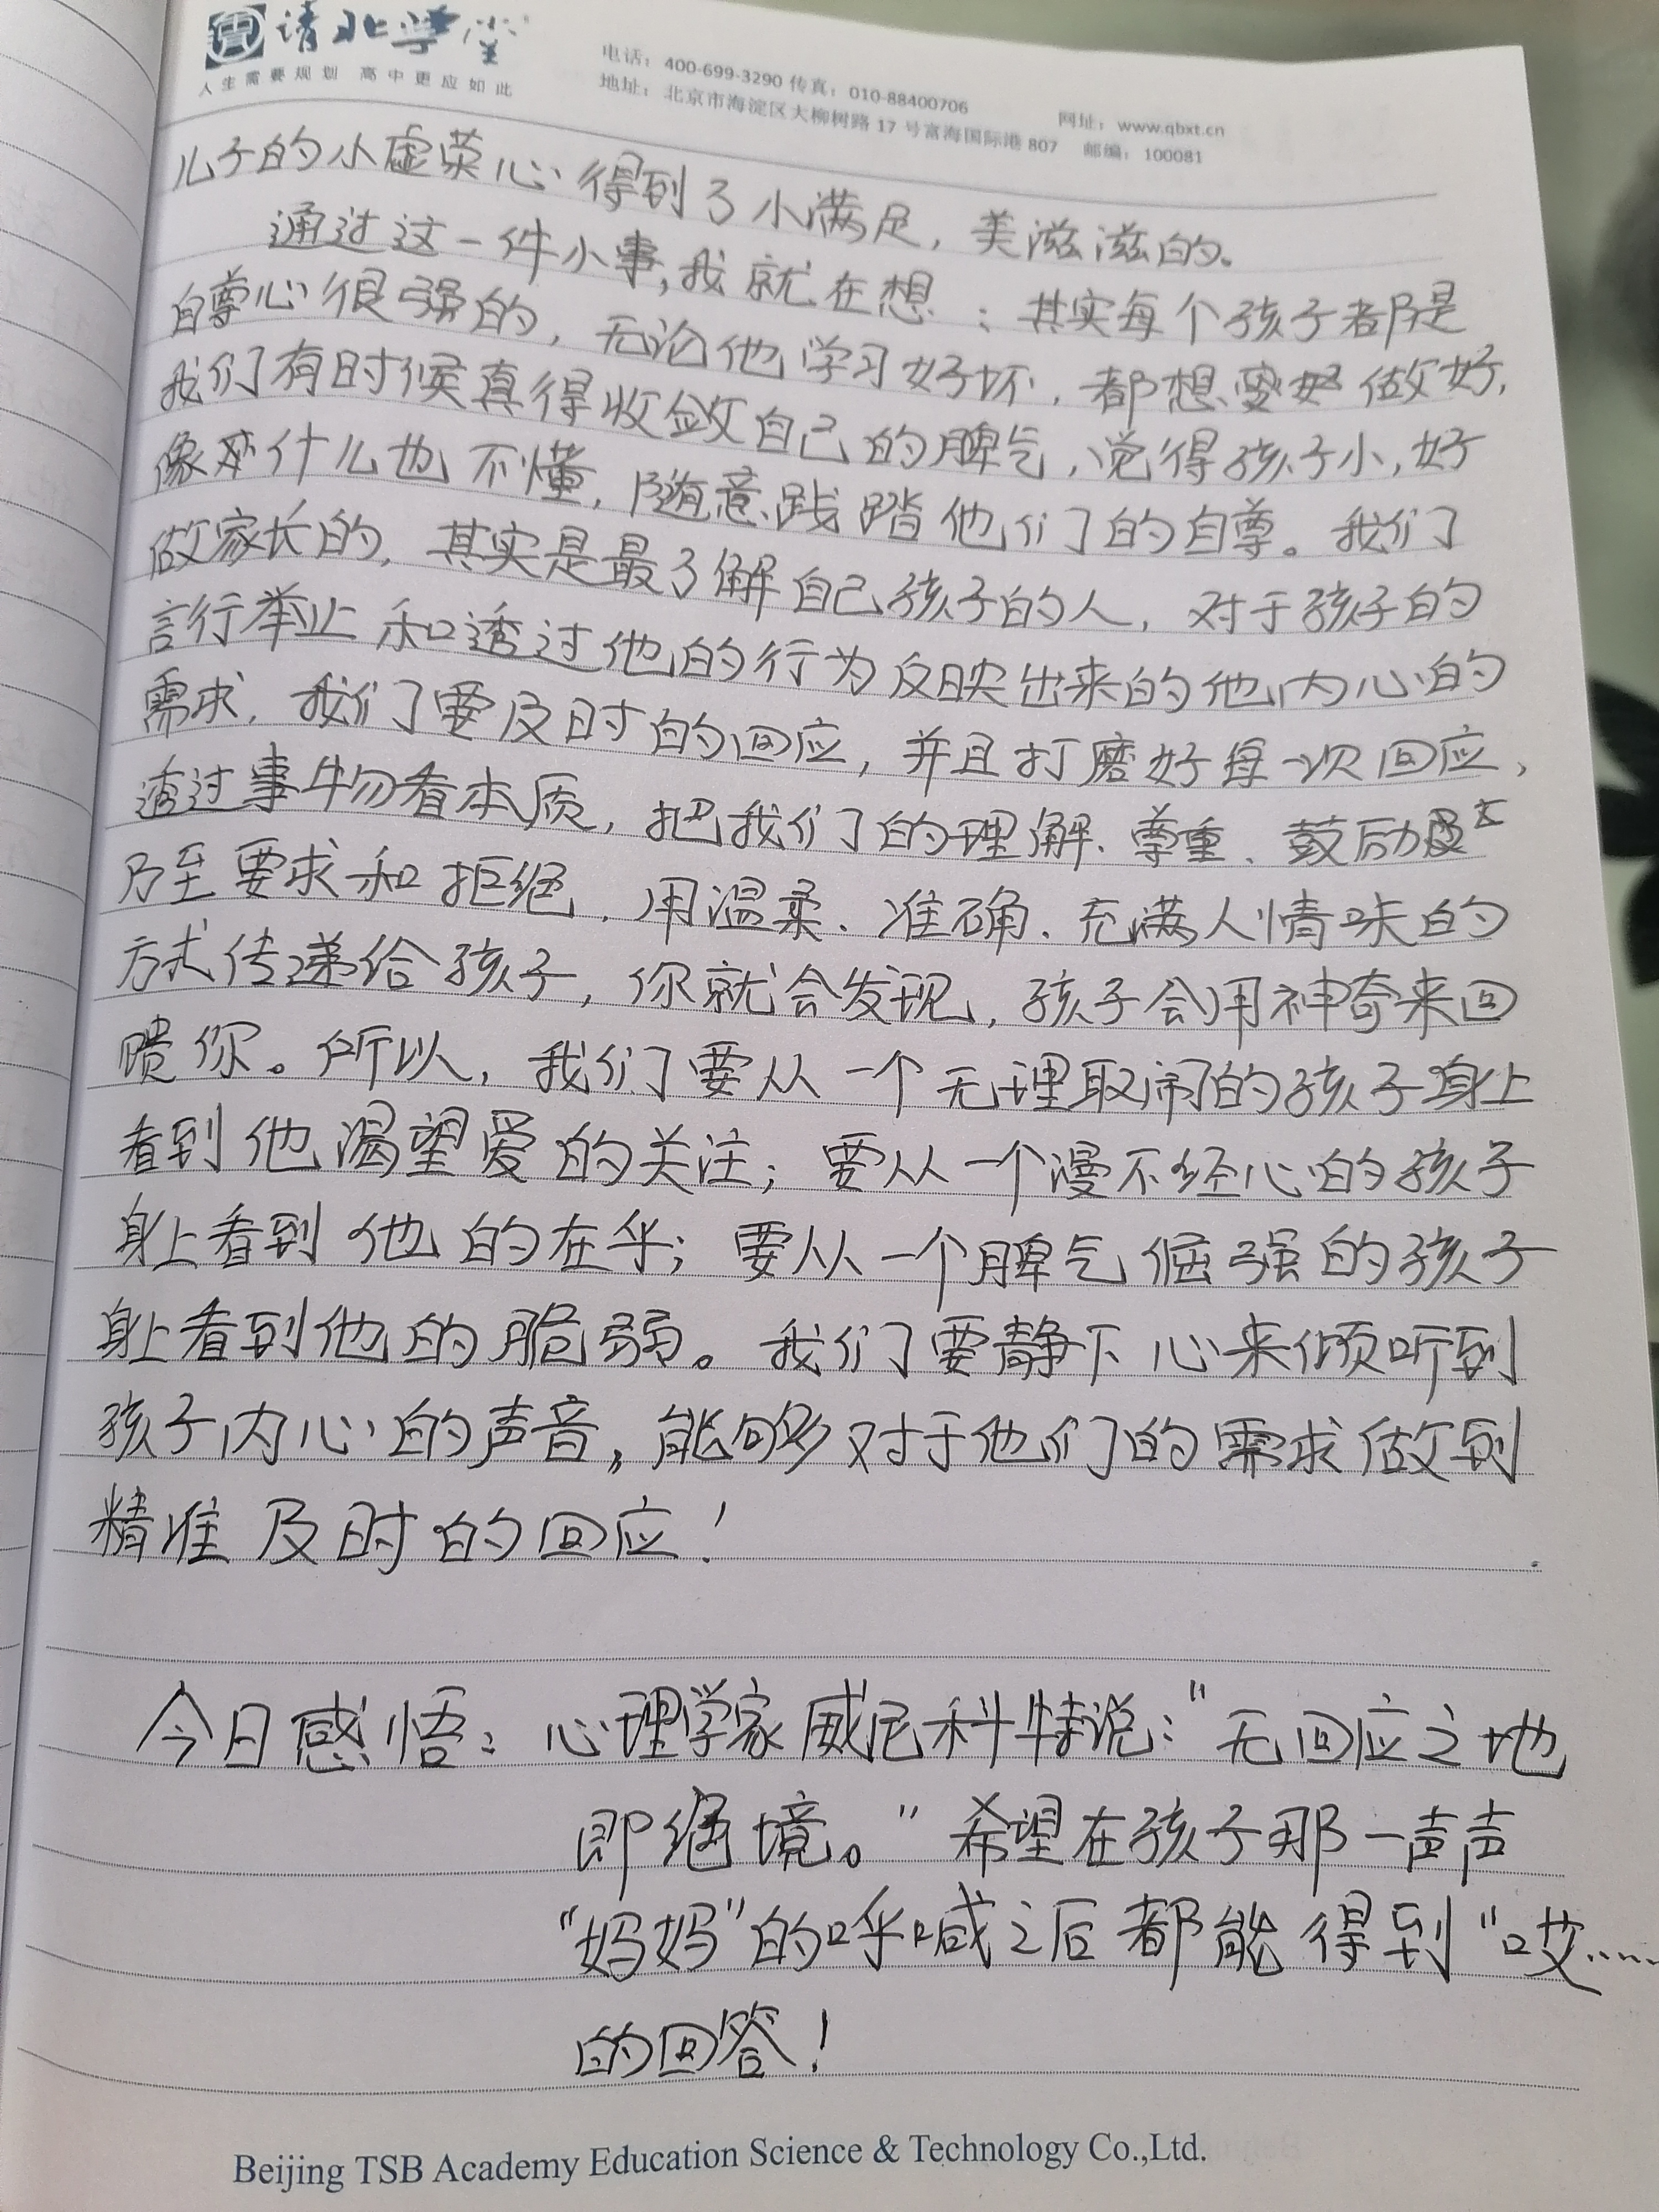 清北学堂
人生需要规划 高中更应如此
电话：400-699-3290 传真：010-88400706 网址：www.qbxt.cn
地址：北京市海淀区大柳树路17号富海国际港807 邮编：100081
儿子的小虚荣心得到了小满足，美滋滋的。
通过这一件小事，我就在想：其实每个孩子都是
自尊心很强的，无论他学习好坏，都想要做好，
我们有时候真得收敛自己的脾气，觉得孩子小，好
像什么也不懂，随意践踏他们的自尊。我们
做家长的，其实是最了解自己孩子的人，对于孩子的
言行举止和透过他的行为反映出来的他内心的
需求，我们要及时的回应，并且打磨好每一次回应，
透过事物看本质，把我们的理解、尊重、鼓励
乃至要求和拒绝，用温柔、准确、充满人情味的
方式传递给孩子，你就会发现，孩子会用神奇来回
赠你。所以，我们要从一个无理取闹的孩子身上
看到他渴望爱的关注；要从一个漫不经心的孩子
身上看到他的在乎；要从一个脾气倔强的孩子
身上看到他的脆弱。我们要静下心来倾听到
孩子内心的声音，能够对于他们的需求做到
精准及时的回应！
今日感悟：心理学家威尼科特说："无回应之地
即绝境。"希望在孩子那一声声
"妈妈"的呼喊之后都能得到"哎……
的回答！
Beijing TSB Academy Education Science & Technology Co.,Ltd.